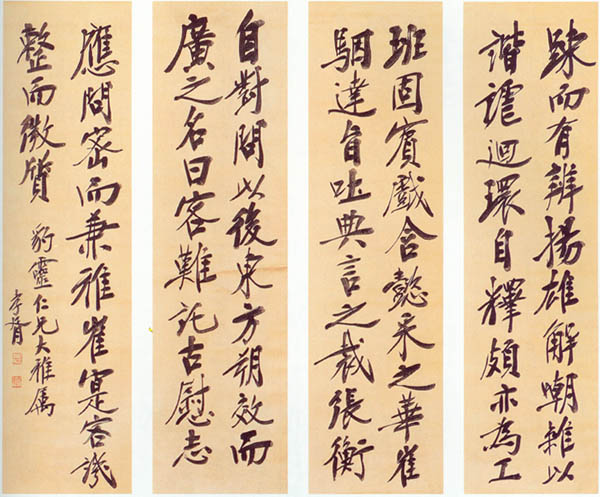 踈而有辨揚雄解嘲雜以
諧謔迴環自釋頗亦為工
班固賓戲含懿采之華崔
駰達旨吐典言之裁張衡
自對問以後東方朔效而
廣之名曰客難託古慰志
應間密而兼雅崔寔客譏
整而微質
豹靈仁兄大雅屬
孝胥